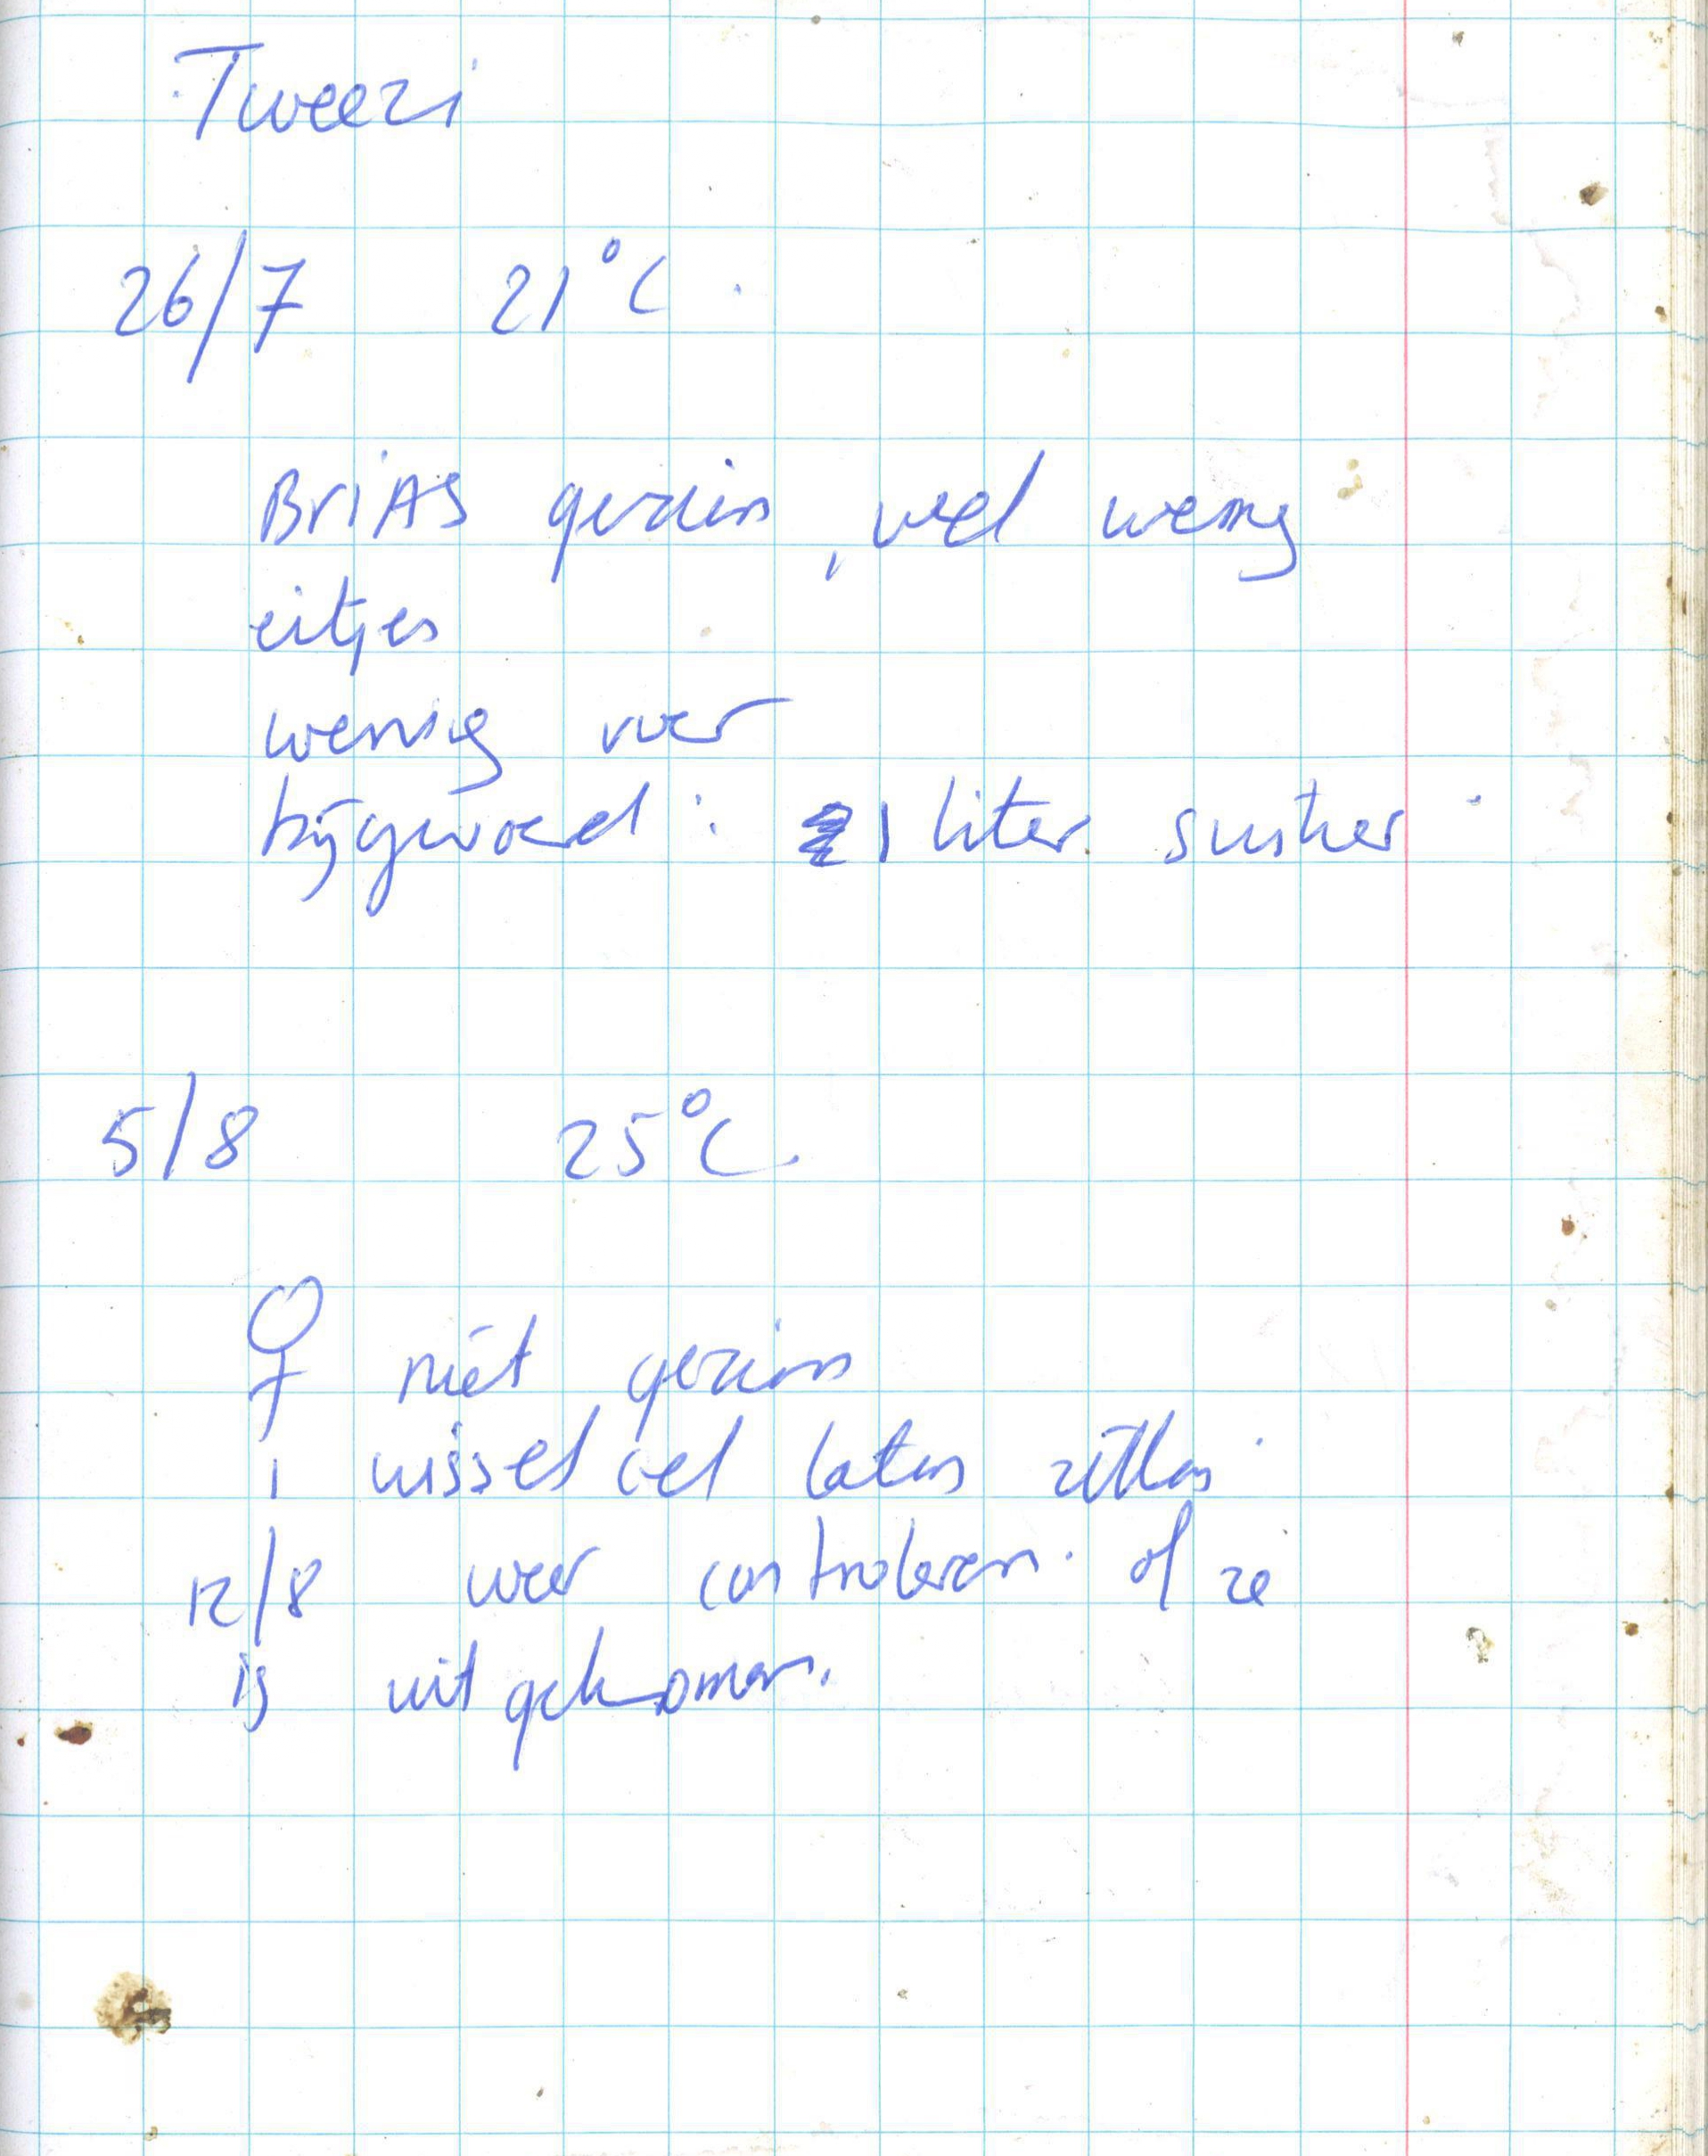 Tweezi
26/7 21°C.
BriAS gezien, veel weinig
eitjes
weinig voer
bijgevoerd: 1 liter suiker
5/8 25°C.
♀ niet gezien
1 wisselcel laten zitten
12/8 weer controleren of ze
is uitgekomen.